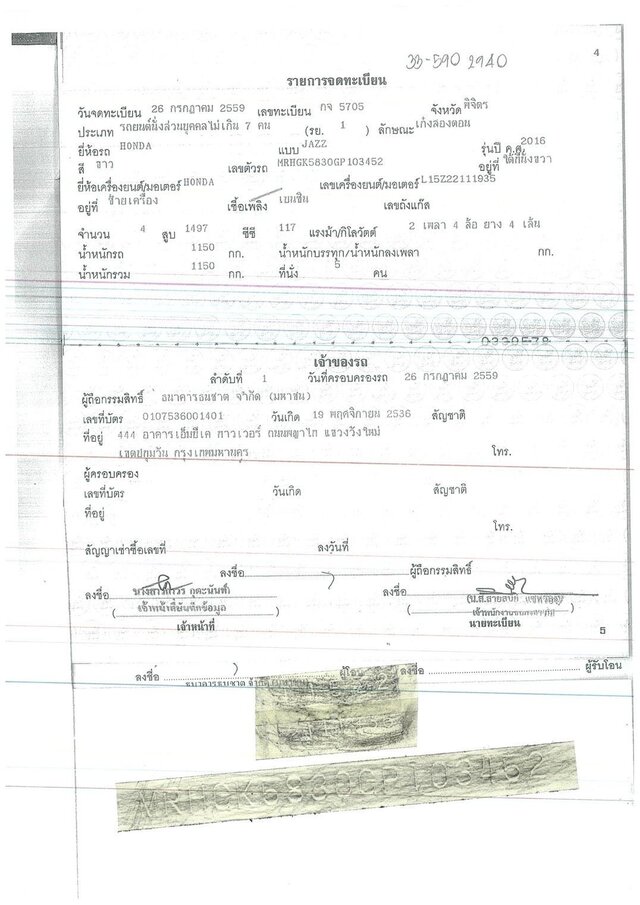 4
33-590 2940
รายการจดทะเบียน
วันจดทะเบียน 26 กรกฎาคม 2559 เลขทะเบียน กจ 5705 จังหวัด พิจิตร
ประเภท รถยนต์นั่งส่วนบุคคลไม่เกิน 7 คน (รย. 1 ) ลักษณะ เก๋งสองตอน
ยี่ห้อรถ HONDA แบบ JAZZ รุ่นปี ค.ศ. 2016
สี ขาว เลขตัวรถ MRHGK5830GP103452 อยู่ที่ ใต้ที่นั่งขวา
ยี่ห้อเครื่องยนต์/มอเตอร์ HONDA เลขเครื่องยนต์/มอเตอร์ L15Z22111935
อยู่ที่ ซ้ายเครื่อง เชื้อเพลิง เบนซิน เลขถังแก๊ส
จำนวน 4 สูบ 1497 ซีซี 117 แรงม้า/กิโลวัตต์ 2 เพลา 4 ล้อ ยาง 4 เส้น
น้ำหนักรถ 1150 กก. น้ำหนักบรรทุก/น้ำหนักลงเพลา กก.
น้ำหนักรวม 1150 กก. ที่นั่ง 5 คน
เจ้าของรถ
ลำดับที่ 1 วันที่ครอบครองรถ 26 กรกฎาคม 2559
ผู้ถือกรรมสิทธิ์ ธนาคารธนชาต จำกัด (มหาชน)
เลขที่บัตร 0107536001401 วันเกิด 19 พฤศจิกายน 2536 สัญชาติ
ที่อยู่ 444 อาคารเอ็มบีเค ทาวเวอร์ ถนนพญาไท แขวงวังใหม่
เขตปทุมวัน กรุงเทพมหานคร โทร.
ผู้ครอบครอง
เลขที่บัตร วันเกิด สัญชาติ
ที่อยู่
โทร.
สัญญาเช่าซื้อเลขที่ ลงวันที่
ลงชื่อ ผู้ถือกรรมสิทธิ์
ลงชื่อ ลงชื่อ
(เจ้าหน้าที่บันทึกข้อมูล)
เจ้าหน้าที่ นายทะเบียน
5
ลงชื่อ ผู้โอน ลงชื่อ ผู้รับโอน
MRHGK5830GP103452